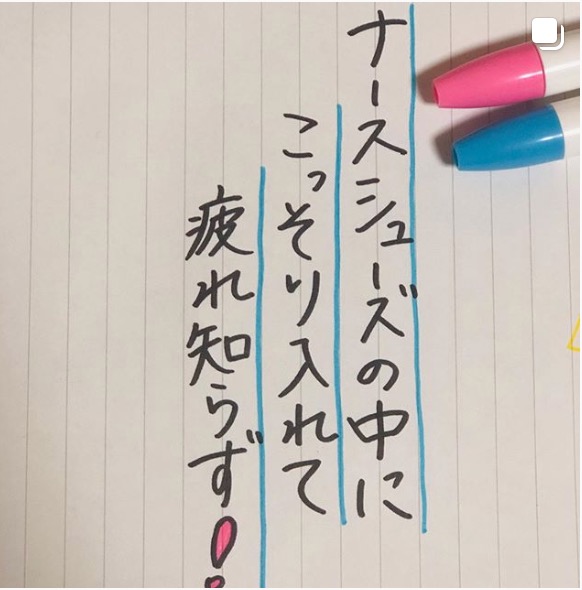 ナースシューズの中に
こっそり入れて
疲れ知らず!